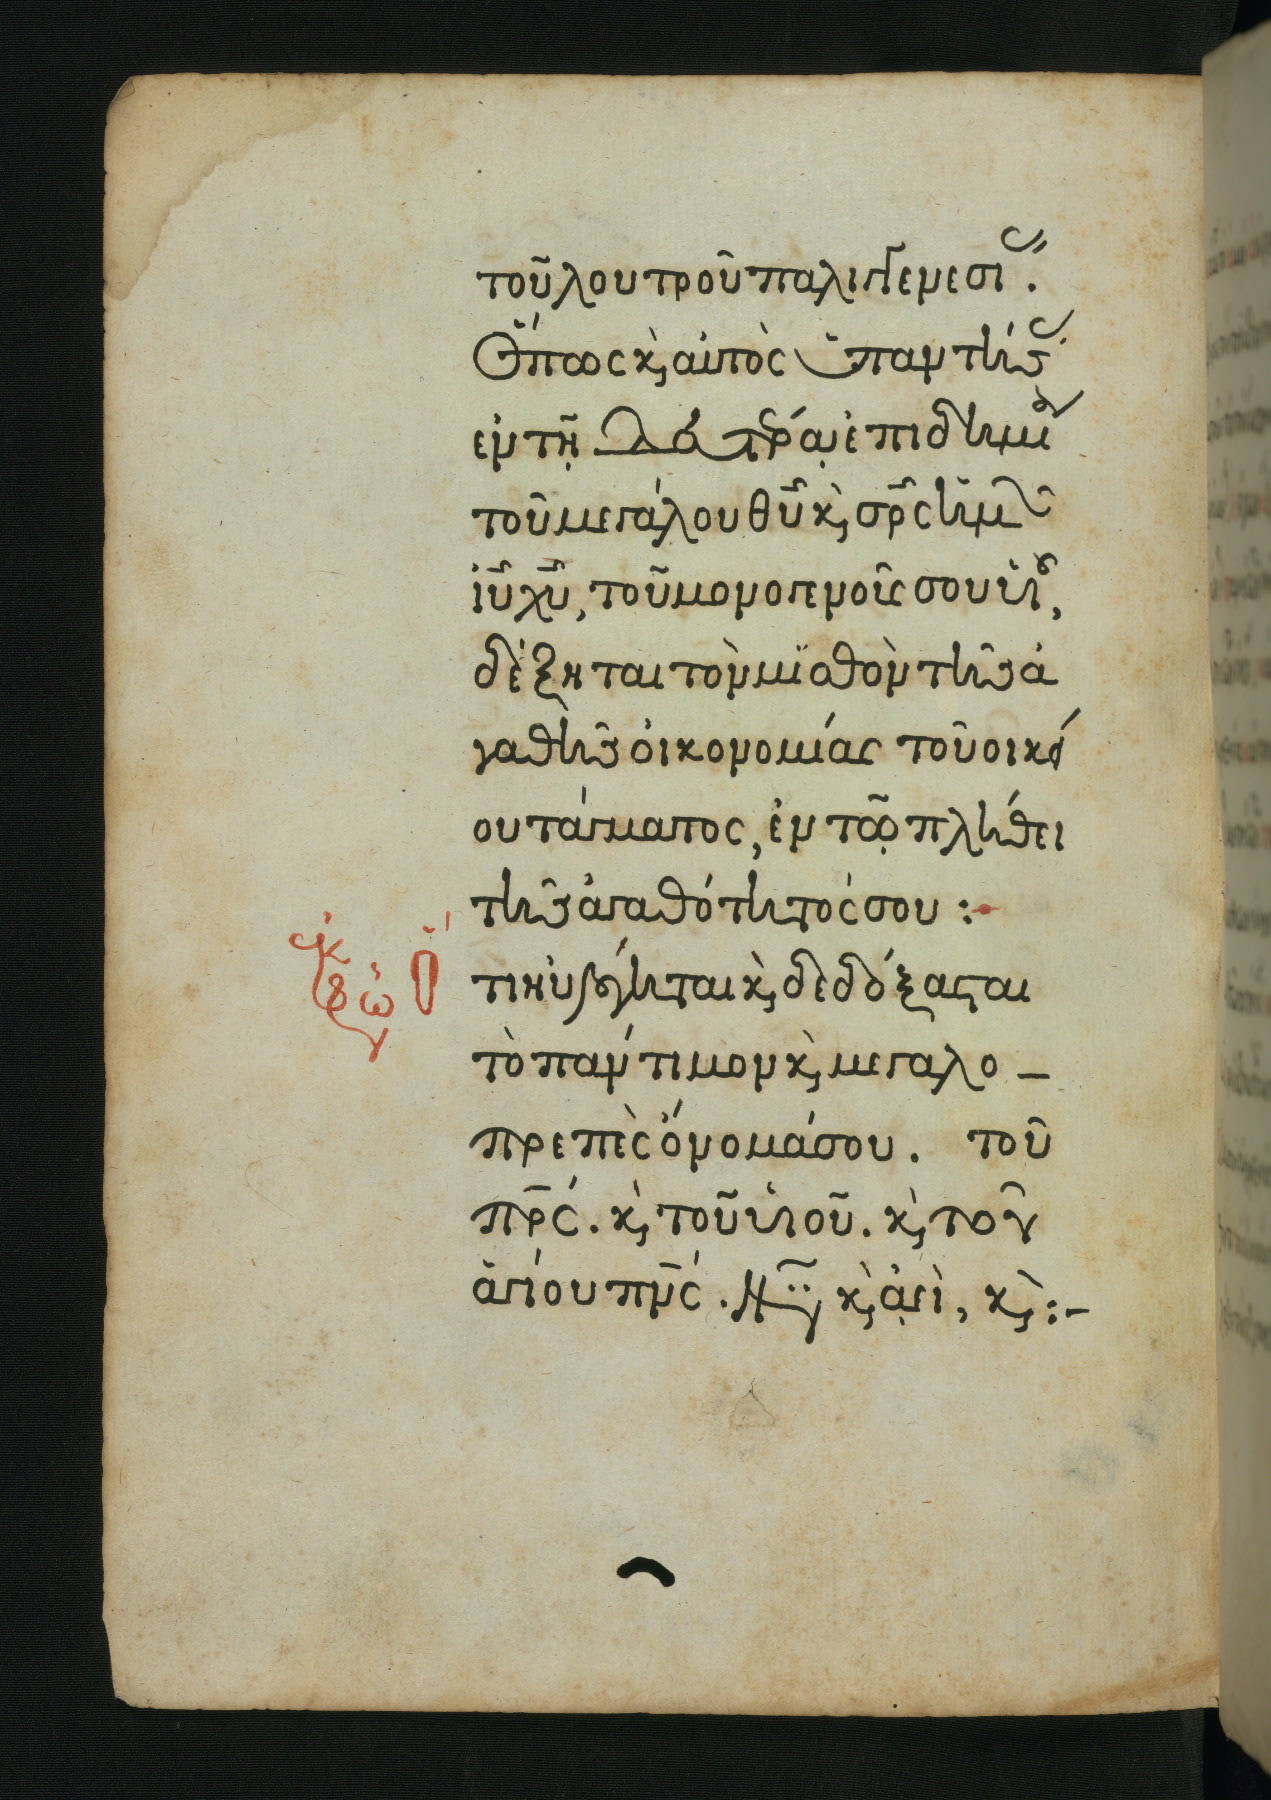 τοῦ λουτροῦ παλιγγενεσί<ας>.
Ὅπως κ(αὶ) αὐτὸς ὑπαντήσ(ας)
ἐν τῇ δευτέρᾳ ἐπιδημί(ᾳ)
τοῦ μεγάλου θῦ κ(αὶ) σρ̅ς ἡμῶ(ν)
ἰῦ χῦ, τοῦ μονογενοῦς σου υἱοῦ,
δέξηται τὸν μισθὸν τῆς ἀ
γαθῆς οἰκονομίας τοῦ οἰκεί
ου τάγματος, ἐν τῷ πλήθει
τῆς ἀγαθότητός σου :-
ἐκφώ(νως) Ὅ
τι ηὐλόγηται κ(αὶ) δεδόξασται
τὸ πάντιμον κ(αὶ) μεγαλο-
πρεπὲς ὄνομά σου. τοῦ
πρ̅ς. κ(αὶ) τοῦ υἱοῦ. κ(αὶ) τοῦ
ἁγίου πν̅ς. νῦν κ(αὶ) ἀεὶ, κ(αὶ) :-